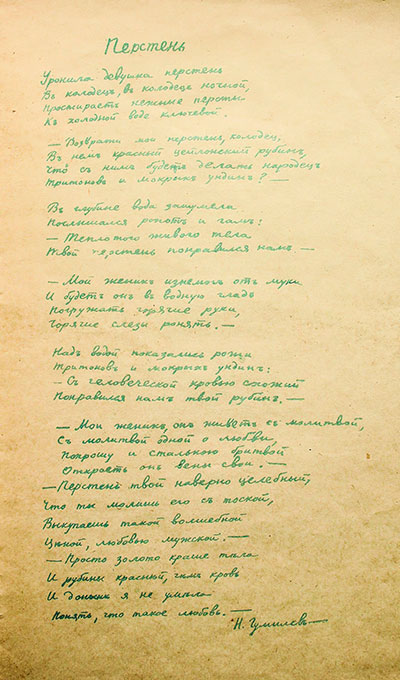 Перстень
Уронила девушка перстень
Въ колодецъ, въ колодецъ ночной,
Простираетъ нежные персты
Къ холодной воде ключевой.
— Возврати мой перстень, колодец,
Въ немъ красный цейлонский рубинъ,
Что съ нимъ будетъ делать народецъ
Тритоновъ и мокрыхъ ундинъ? —
Въ глубине вода зашумела
Послышался ропотъ и гамъ:
— Теплотою живого тела
Твой перстень понравился намъ —
— Мой женихъ изнемогъ отъ муки
И будетъ онъ въ водную гладь
Погружать горячие руки,
Горячие слезы ронять. —
Надъ водой показались рожи
Тритоновъ и мокрыхъ ундинъ:
— Съ человеческой кровью схожий
Понравился намъ твой рубинъ. —
— Мой женихъ, онъ живетъ съ молитвой,
Съ молитвой одной о любви,
Попрошу и стальною бритвой
Откроетъ онъ вены свои. —
— Перстень твой наверно целебный,
Что ты молишь его съ тоской,
Выкупаешь такой волшебной
Цѣной, любовью мужской. —
— Просто золото краше тѣла
И рубины красный, чѣмъ кровь
И доныне я не умѣла
Понять, что такое любовь. —
Н. Гумилевъ